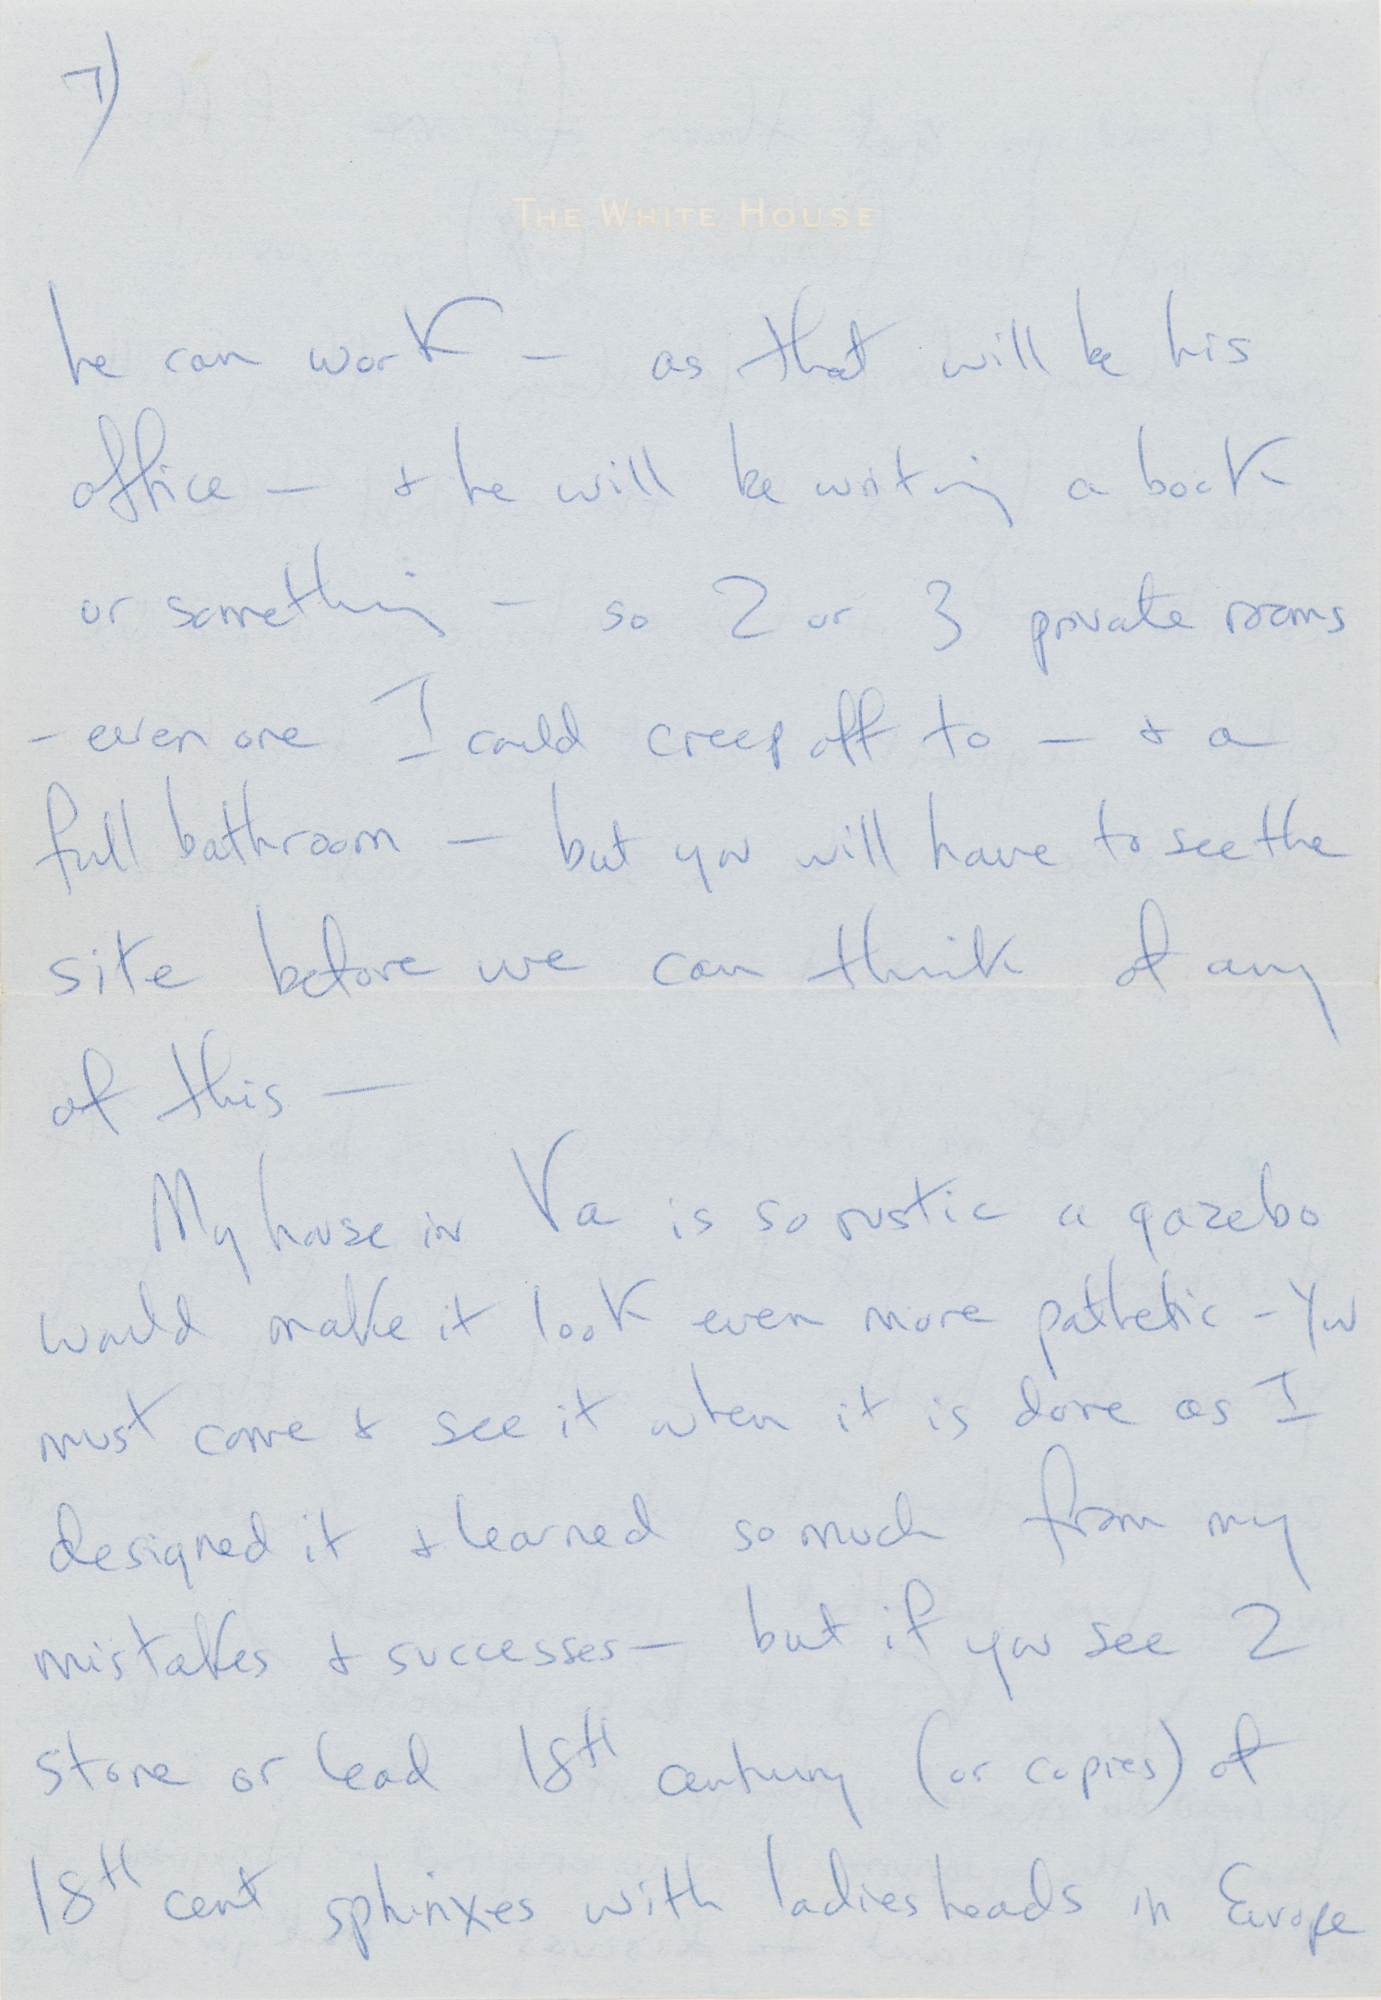 7)
THE WHITE HOUSE
he can work — as that will be his
office — & he will be writing a book
or something — so 2 or 3 private rooms
- even one I could creep off to — & a
full bathroom — but you will have to see the
site before we can think of any
of this —
My house in Va is so rustic a gazebo
would make it look even more pathetic - You
must come & see it when it is done as I
designed it & learned so much from my
mistakes & successes — but if you see 2
stone or lead 18th century (or copies) of
18th cent sphinxes with ladies heads in Europe